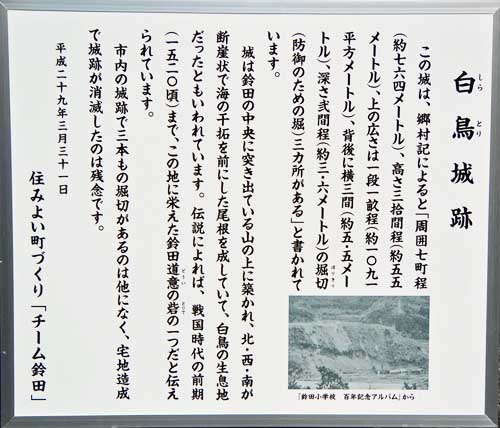 白鳥城跡
しら
とり
この城は、郷村記によると「周囲七町程
(約七六四メートル)、高さ三拾間程(約五五
メートル)、上の広さは一段一畝程(約一〇九一
平方メートル)、背後に横三間(約五・五メー
トル)、深さ弐間程(約三・六メートル)の堀切
ほりきり
(防御のための堀)三カ所がある」と書かれて
います。
城は鈴田の中央に突き出ている山の上に築かれ、北・西・南が
断崖状で海の干拓を前にした尾根を成していて、白鳥の生息地
だったともいわれています。伝説によれば、戦国時代の前期
(一五二〇頃)まで、この地に栄えた鈴田道意の砦の一つだと伝え
どうい
とりで
られています。
市内の城跡で三本もの堀切があるのは他になく、宅地造成
で城跡が消滅したのは残念です。
平成二十九年三月三十一日
住みよい町づくり「チーム鈴田」
「鈴田小学校 百年記念アルバム」から